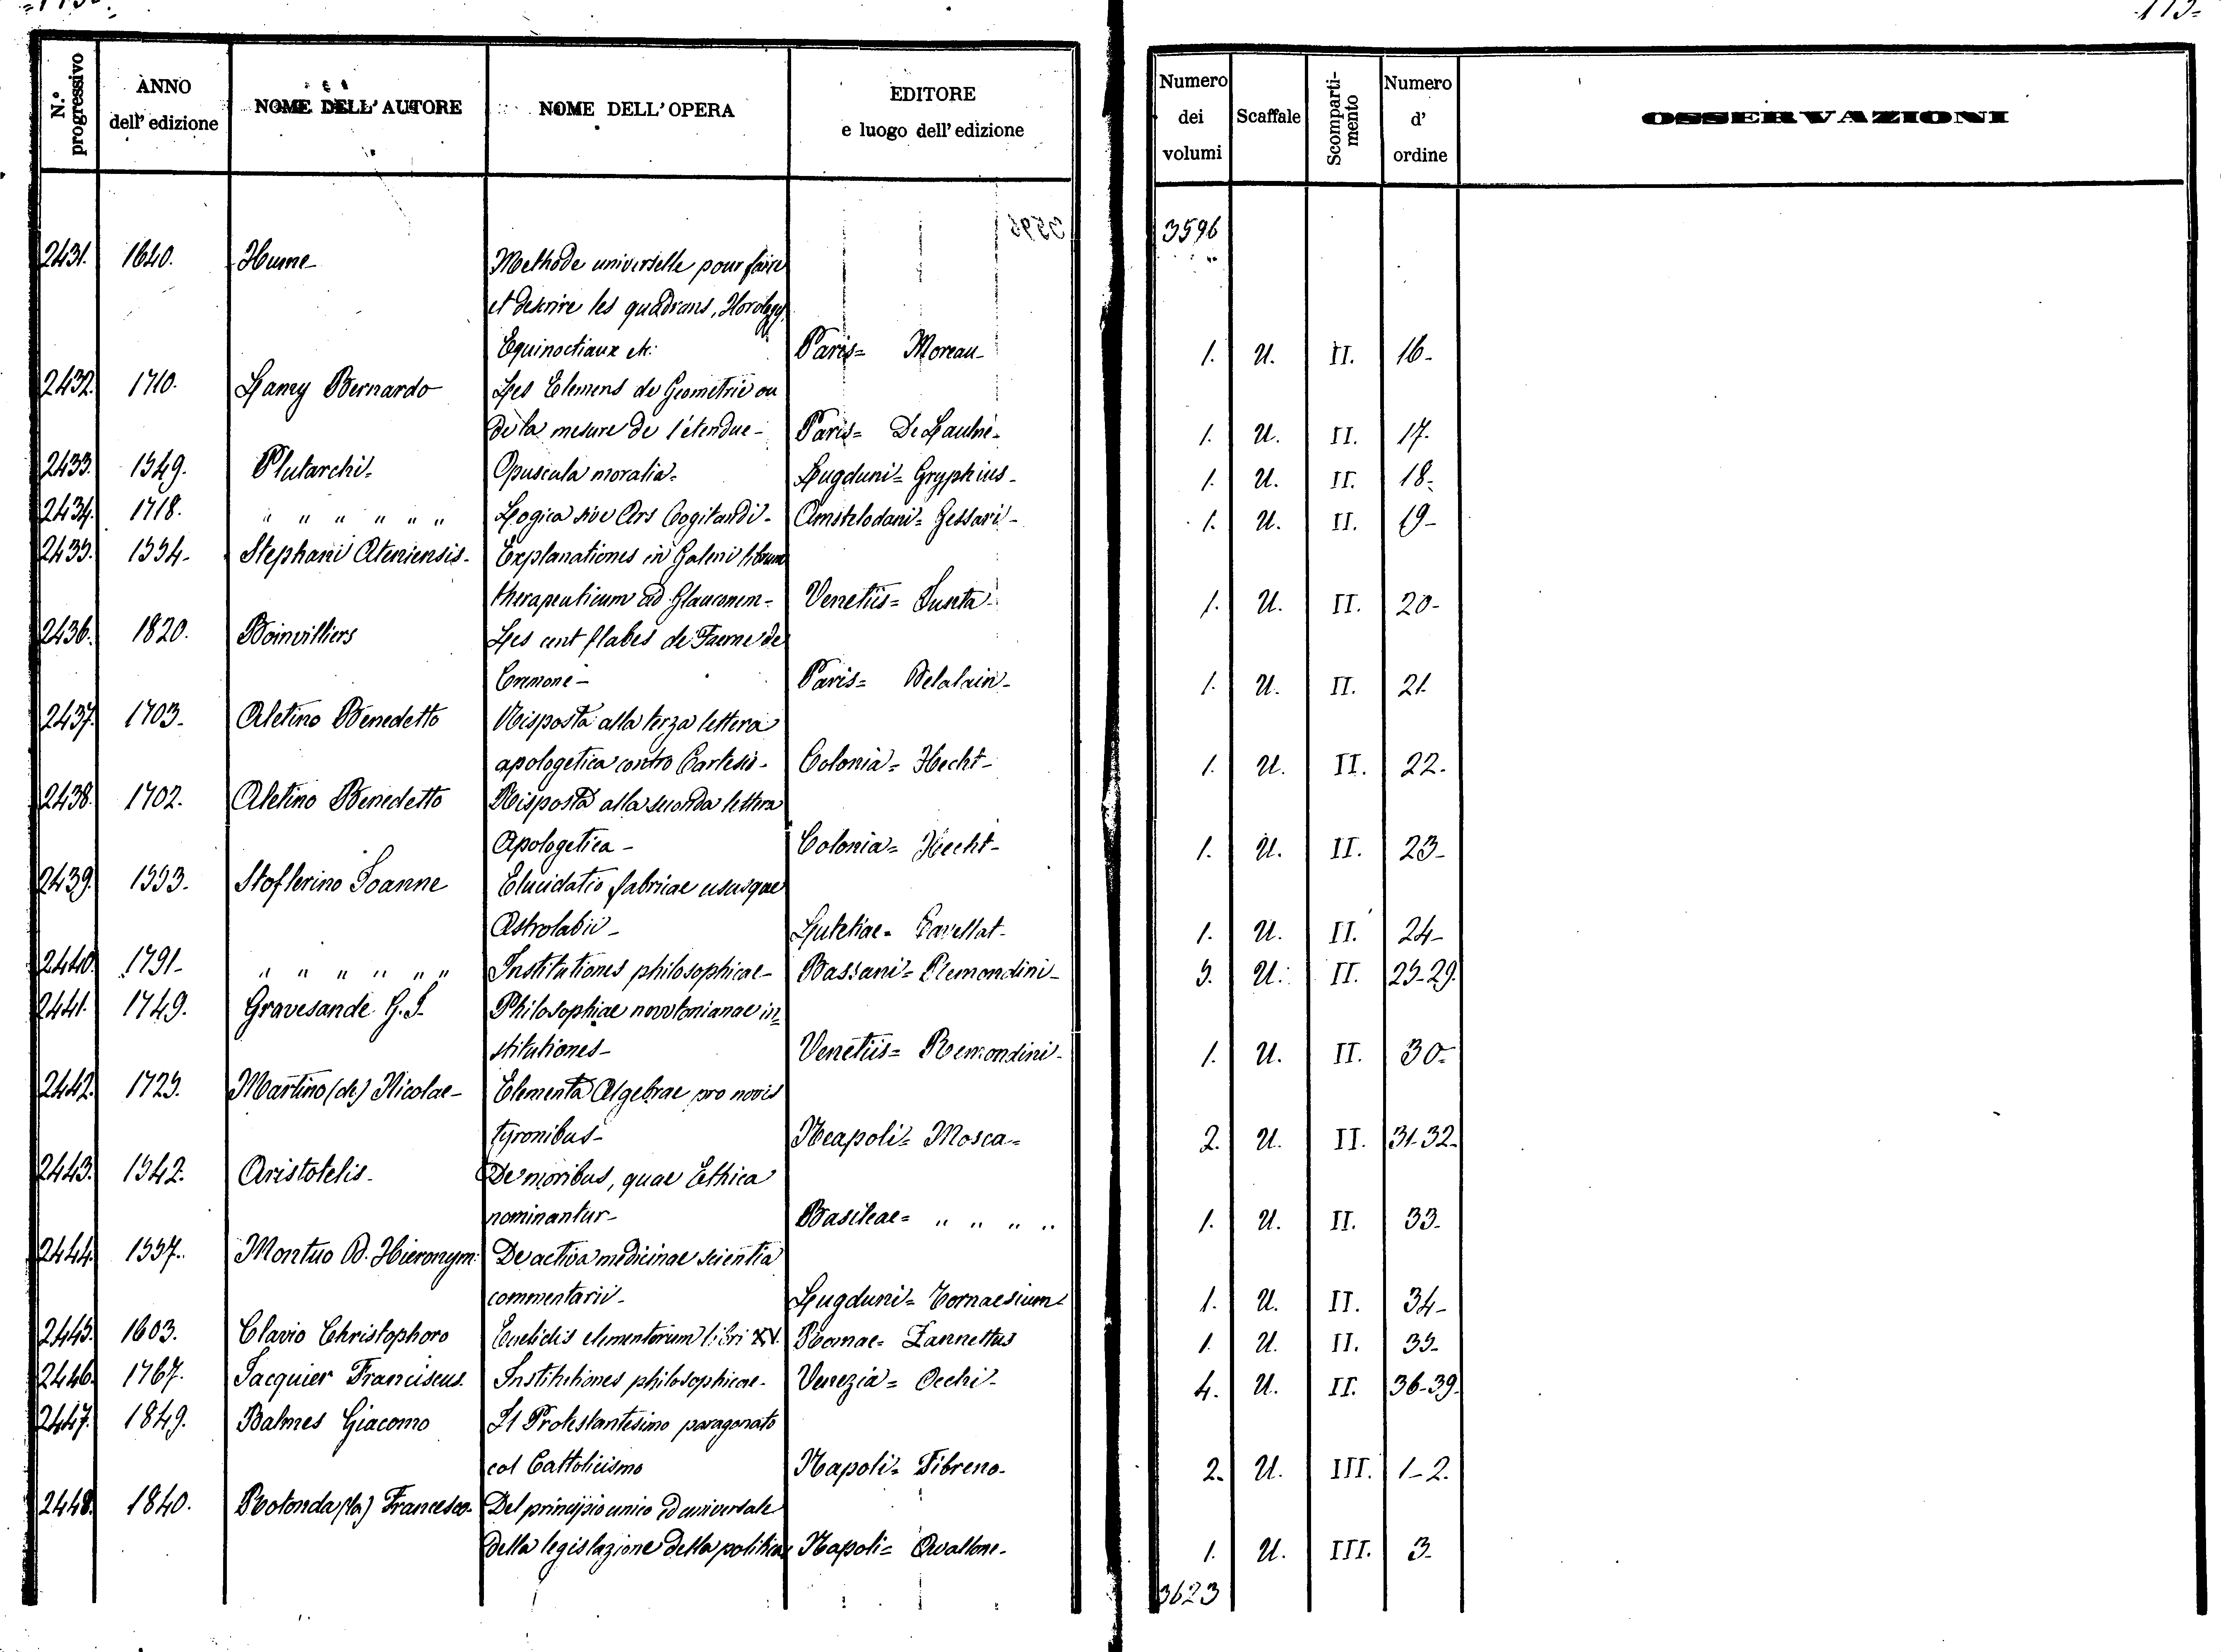 N.° progressivo | ANNO dell' edizione | NOME DELL' AUTORE | NOME DELL' OPERA | EDITORE e luogo dell' edizione | Numero dei volumi | Scaffale | Scomparti-mento | Numero d' ordine | OSSERVAZIONI
3596
2431. 1640. Hume Methode universelle pour faire
et descrire les quadrans, Horology.
Equinoctiaux etc: Paris= Moreau- 1. U. II. 16-
2432. 1710. Lamy Bernardo Les Elemens de Geometrie ou
de la mesure de l'étendue- Paris= De Laulne- 1. U. II. 17.
2433. 1549. Plutarchi- Opuscula moralia- Lugduni= Gryphius- 1. U. II. 18-
2434. 1718. " " " " " " Logica sive Ars Cogitandi- Amstelodani= 1. U. II. 19-
2435. 1554- Stephani Ateniensis- Explanationes in Galeni librum
therapeuticum ad Glauconem- Venetiis= Junta- 1. U. II. 20-
2436. 1820. Boinvilliers Les cent flabes de Faerne de
Cremone- Paris= Delalain- 1. U. II. 21.
2437. 1703- Aletino Benedetto Risposta alla terza lettera
apologetica contro Cartesio- Colonia= Hecht- 1. U. II. 22.
2438. 1702. Aletino Benedetto Risposta alla seconda lettera
Apologetica- Colonia= Hecht- 1. U. II. 23-
2439. 1553- Stoflerino Joanne Elucidatio fabricae ususque
Astrolabii- Lutetiae= Cavellat- 1. U. II. 24-
2440. 1791- " " " " " " Institutiones philosophicae- Bassani= Remondini- 5. U. II. 25-29.
2441. 1749. Gravesande G. J. Philosophiae newtonianae in=
stitutiones- Venetiis= Remondini- 1. U. II. 30-
2442. 1725. Martino (de) Nicolae- Elementa Algebrae pro novis
tyronibus- Neapoli= Mosca- 2. U. II. 31-32.
2443. 1542. Aristotelis- De moribus, quae Ethica
nominantur- Basileae= " " " " 1. U. II. 33-
2444. 1557. Montuo D. Hieronym: De activa medicinae scientia
commentarii- Lugduni= Tornaesium- 1. U. II. 34-
2445. 1603. Clavio Christophoro Euclidis elementorum libri XV. Romae= Zannettus 1. U. II. 35-
2446. 1767. Jacquier Franciscus. Institutiones philosophicae- Venezia= Occhi- 4. U. II. 36-39.
2447. 1849. Balmes Giacomo Il Protestantesimo paragonato
col Cattolicismo Napoli= Fibreno- 2. U. III. 1-2.
2448. 1840. Rotonda (la) Francesco- Del principio unico ed universale
della legislazione della politica Napoli= Avallone- 1. U. III. 3-
3623